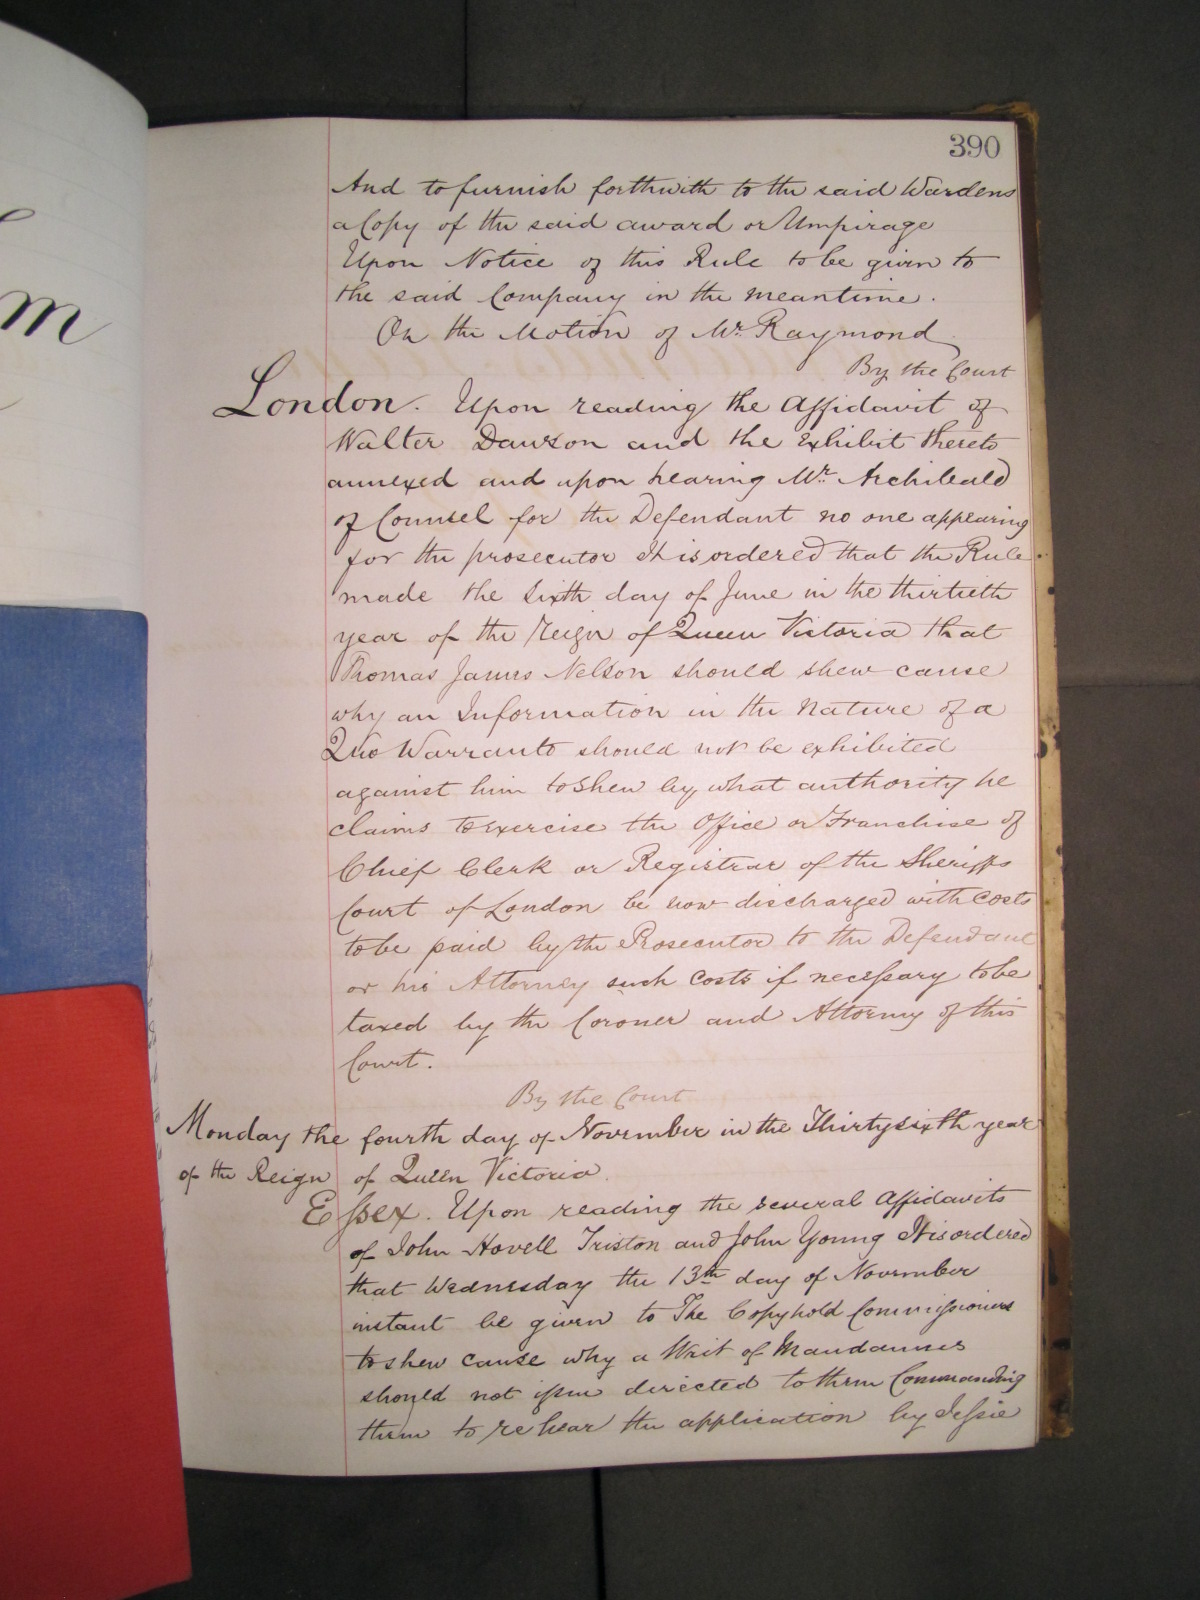 390
And to furnish forthwith to the said Wardens
a Copy of the said award or Umpirage
Upon Notice of this Rule to be given to
the said Company in the meantime.
On the Motion of Mr. Raymond
By the Court
London. Upon reading the Affidavit of
Walter Dawson and the Exhibit thereto
annexed and upon hearing Mr. Archibald
of Counsel for the Defendant no one appearing
for the prosecutor It is ordered that the Rule
made the Sixth day of June in the thirtieth
year of the Reign of Queen Victoria that
Thomas James Nelson should shew cause
why an Information in the Nature of a
Quo Warranto should not be exhibited
against him to shew by what authority he
claims to exercise the Office or Franchise of
Chief Clerk or Registrar of the Sheriffs
Court of London be now discharged with costs
to be paid by the Prosecutor to the Defendant
or his Attorney such costs if necessary to be
taxed by the Coroner and Attorney of this
Court.
By the Court
Monday the fourth day of November in the Thirty sixth year
of the Reign of Queen Victoria.
Essex. Upon reading the several Affidavits
of John Hovell Triston and John Young It is ordered
that Wednesday the 13th day of November
instant be given to The Copyhold Commissioners
to shew cause why a Writ of Mandamus
should not issue directed to them Commanding
them to re hear the application by Jessie
m